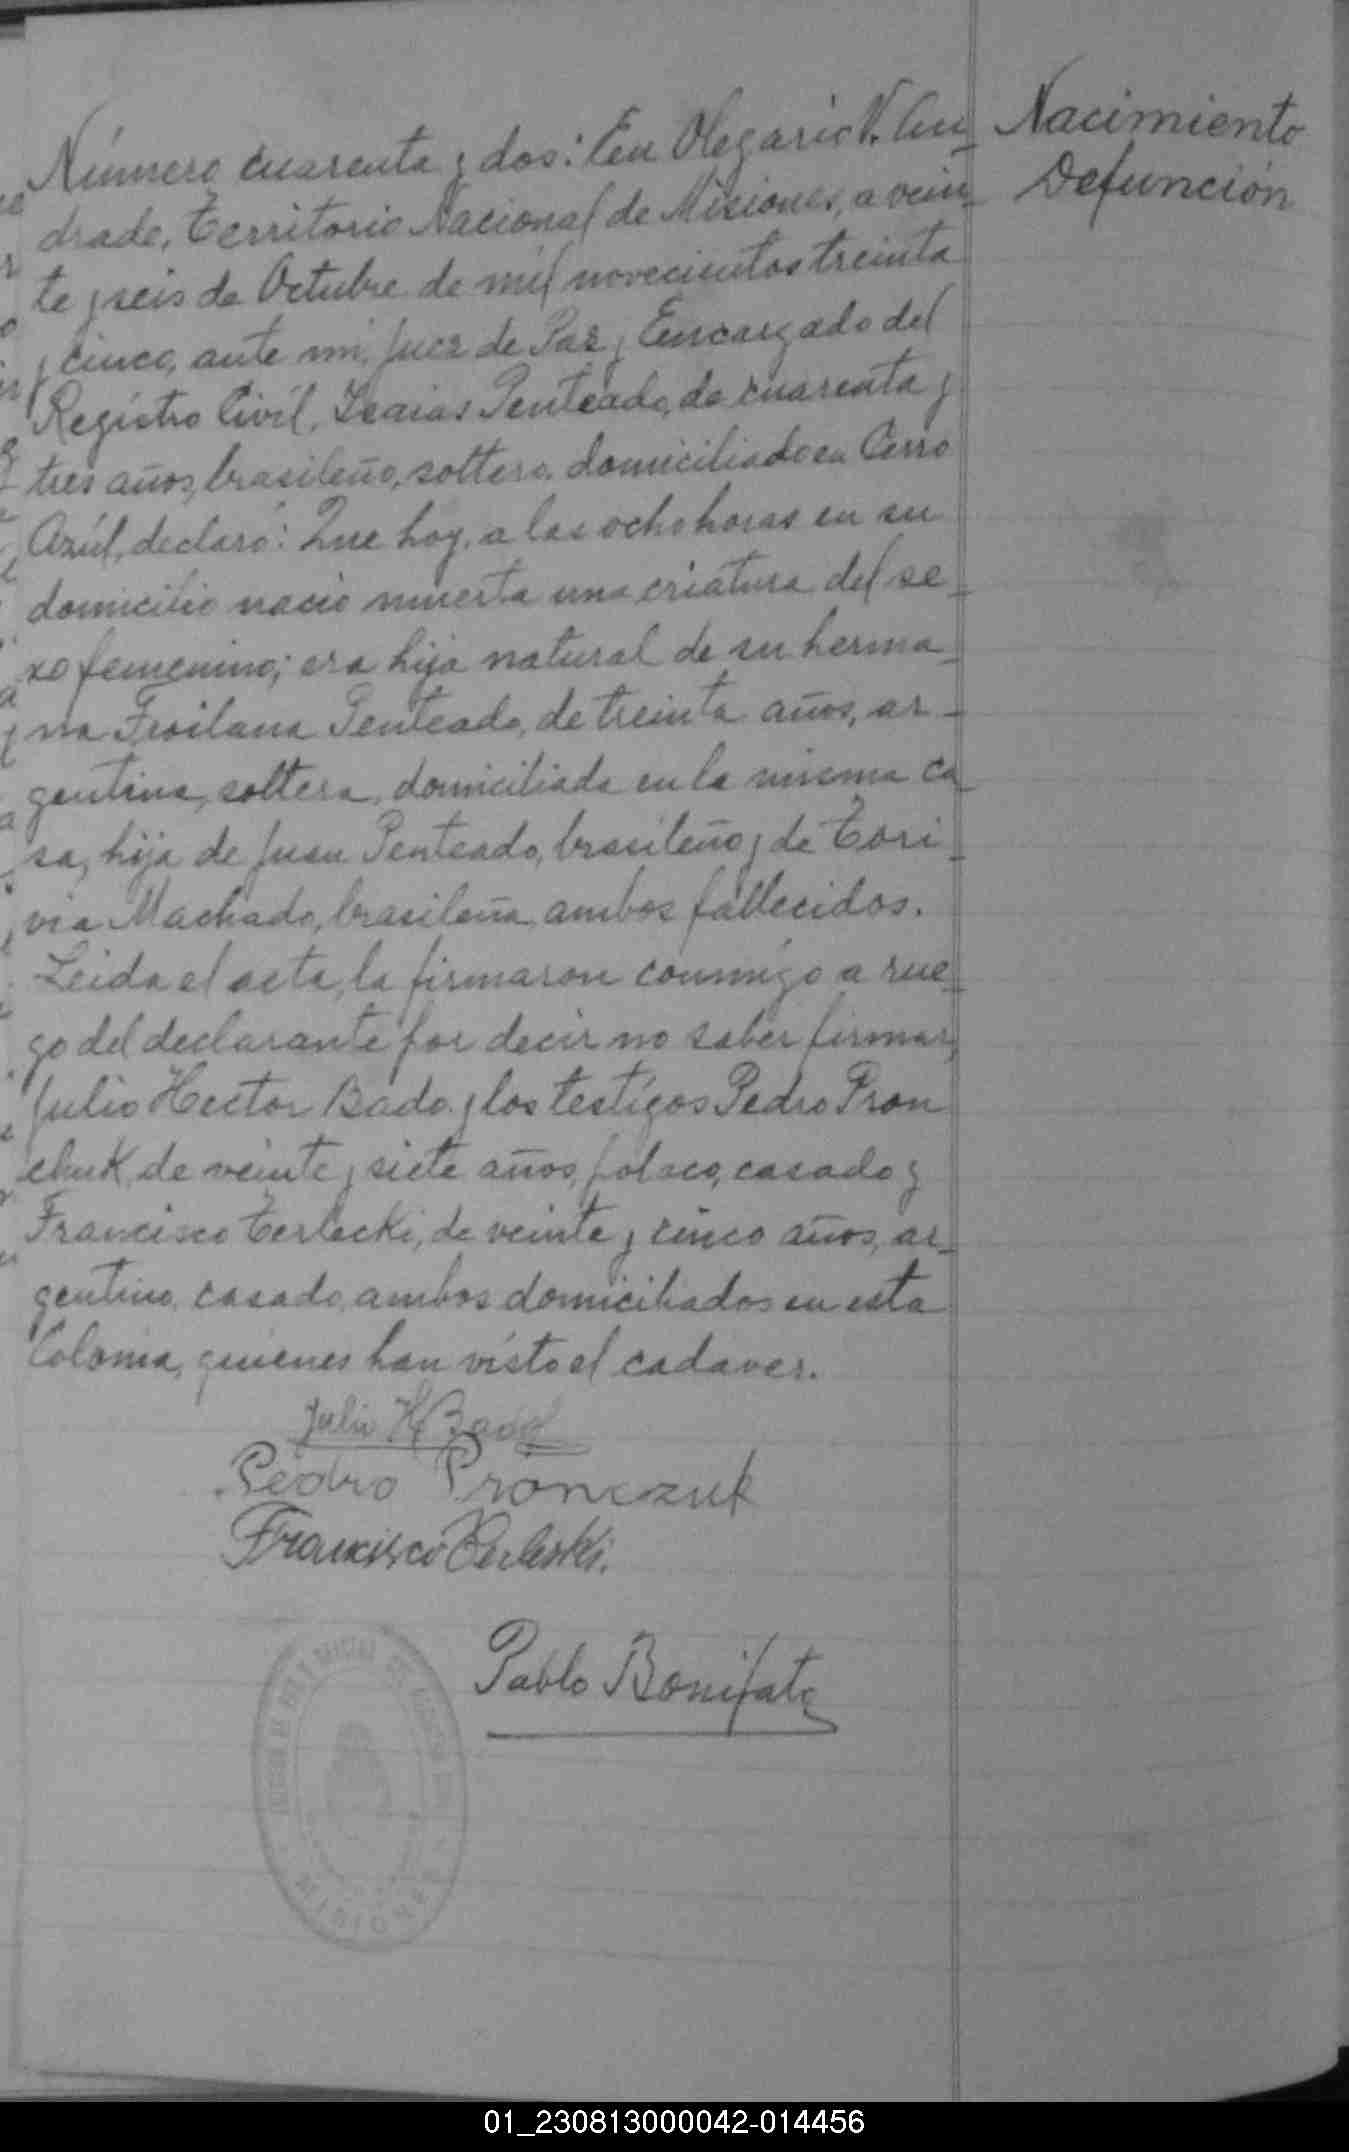 Nacimiento
Defunción
Número cuarenta y dos: En Olegario V. An-
drade, Territorio Nacional de Misiones, a vein-
te y seis de Octubre de mil novecientos treinta
y cinco, ante mi, Juez de Paz y Encargado del
Registro Civil, Isaias Penteado, de cuarenta y
tres años, brasileño, soltero, domiciliado en Cerro
Azúl, declaró: Que hoy, a las ocho horas en su
domicilio nació muerta una criatura del se-
xo femenino; era hija natural de su herma-
na Froilana Penteado, de treinta años, ar-
gentina, soltera, domiciliada en la misma ca-
sa, hija de Juan Penteado, brasileño y de Tori-
via Machado, brasileña, ambos fallecidos.
Leida el acta, la firmaron conmígo a rue-
go del declarante por decir no saber firmar,
Julio Hector Bado y los testígos Pedro Pron
chuk, de veinte y siete años, polaco, casado y
Francisco Terlecki, de veinte y cinco años, ar-
gentino, casado, ambos domiciliados en esta
Colonia, quienes han visto el cadaver.
Julio H Bado
Pedro Pronczuk
Francisco Terleski.
Pablo Bonifato
MISIONES
01_230813000042-014456